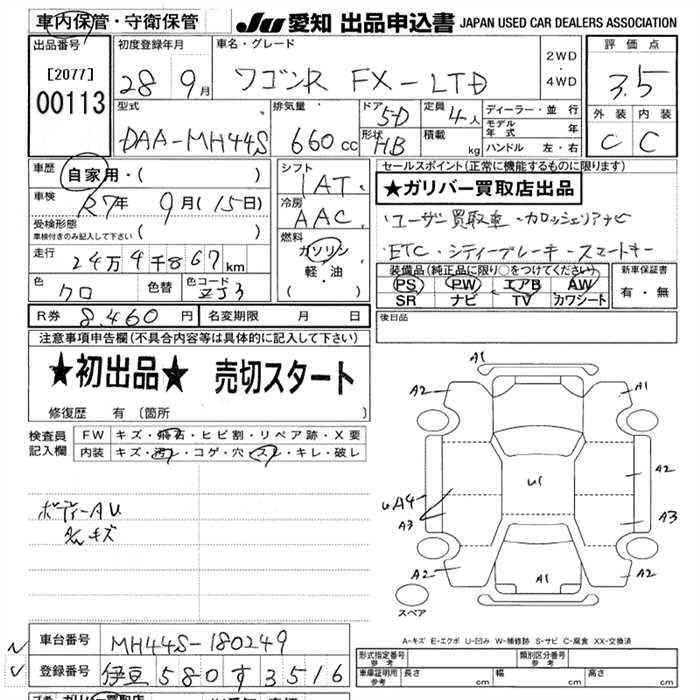 車内保管・守衛保管 JU 愛知 出品申込書 JAPAN USED CAR DEALERS ASSOCIATION
出品番号 [2077] 00113
初度登録年月 28 9月
車名・グレード ワゴンR FX-LTD
2WD・4WD
評価点 3.5
外装 内装
C C
型式 DAA-MH44S
排気量 660cc
ドア 5D
形状 HB
定員 4人
積載 kg
ディーラー・並行
モデル年式 年
ハンドル 左・右
車歴 自家用・( )
車検 R7年 9月(15日)
受検形態 車検付きのみ記入して下さい ( )
走行 24万4千867km
色 クロ 色替 色コード ZJ3
シフト 1AT
冷房 AAC
燃料 ガソリン 軽・油 ( )
セールスポイント(正常に機能するものに限ります)
★ガリバー買取店出品
・ユーザー買取車・カロッツェリアナビ
・ETC・シティーブレーキ・スマートキー
装備品(純正品に限り○をつけてください)
PS PW エアB AW
SR ナビ TV カワシート
新車保証書 有・無
R券 8,460円 名変期限 月 日
後日品
注意事項申告欄(不具合内容等は具体的に記入して下さい)
★初出品★ 売切スタート
修復歴 有〔箇所 〕
検査員記入欄
FW キズ・飛石・ヒビ割・リペア跡・X要
内装 キズ・汚レ・コゲ・穴・スレ・キレ・破レ
ボディーAU
キズ
A1
A2 A1
A2
U1
UA4
A3 A3
A2 A1 A2
スペア
A-キズ E-エクボ U-凹み W-補修跡 S-サビ C-腐食 XX-交換済
車台番号 MH44S-180249
登録番号 伊豆 580す3516
形式指定番号 参考 類別区分番号 参考
車庫証明用 参考 長さ cm 幅 cm 高さ cm